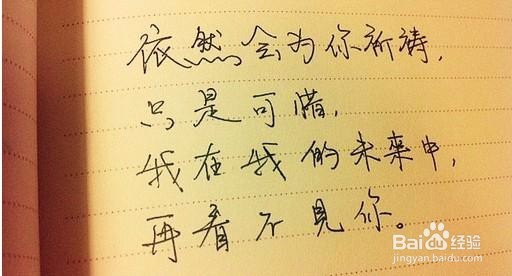 依然会为你祈祷,
只是可惜,
我在我的未来中,
再看不見你。
Baidu 经验
jingyan.baidu.com